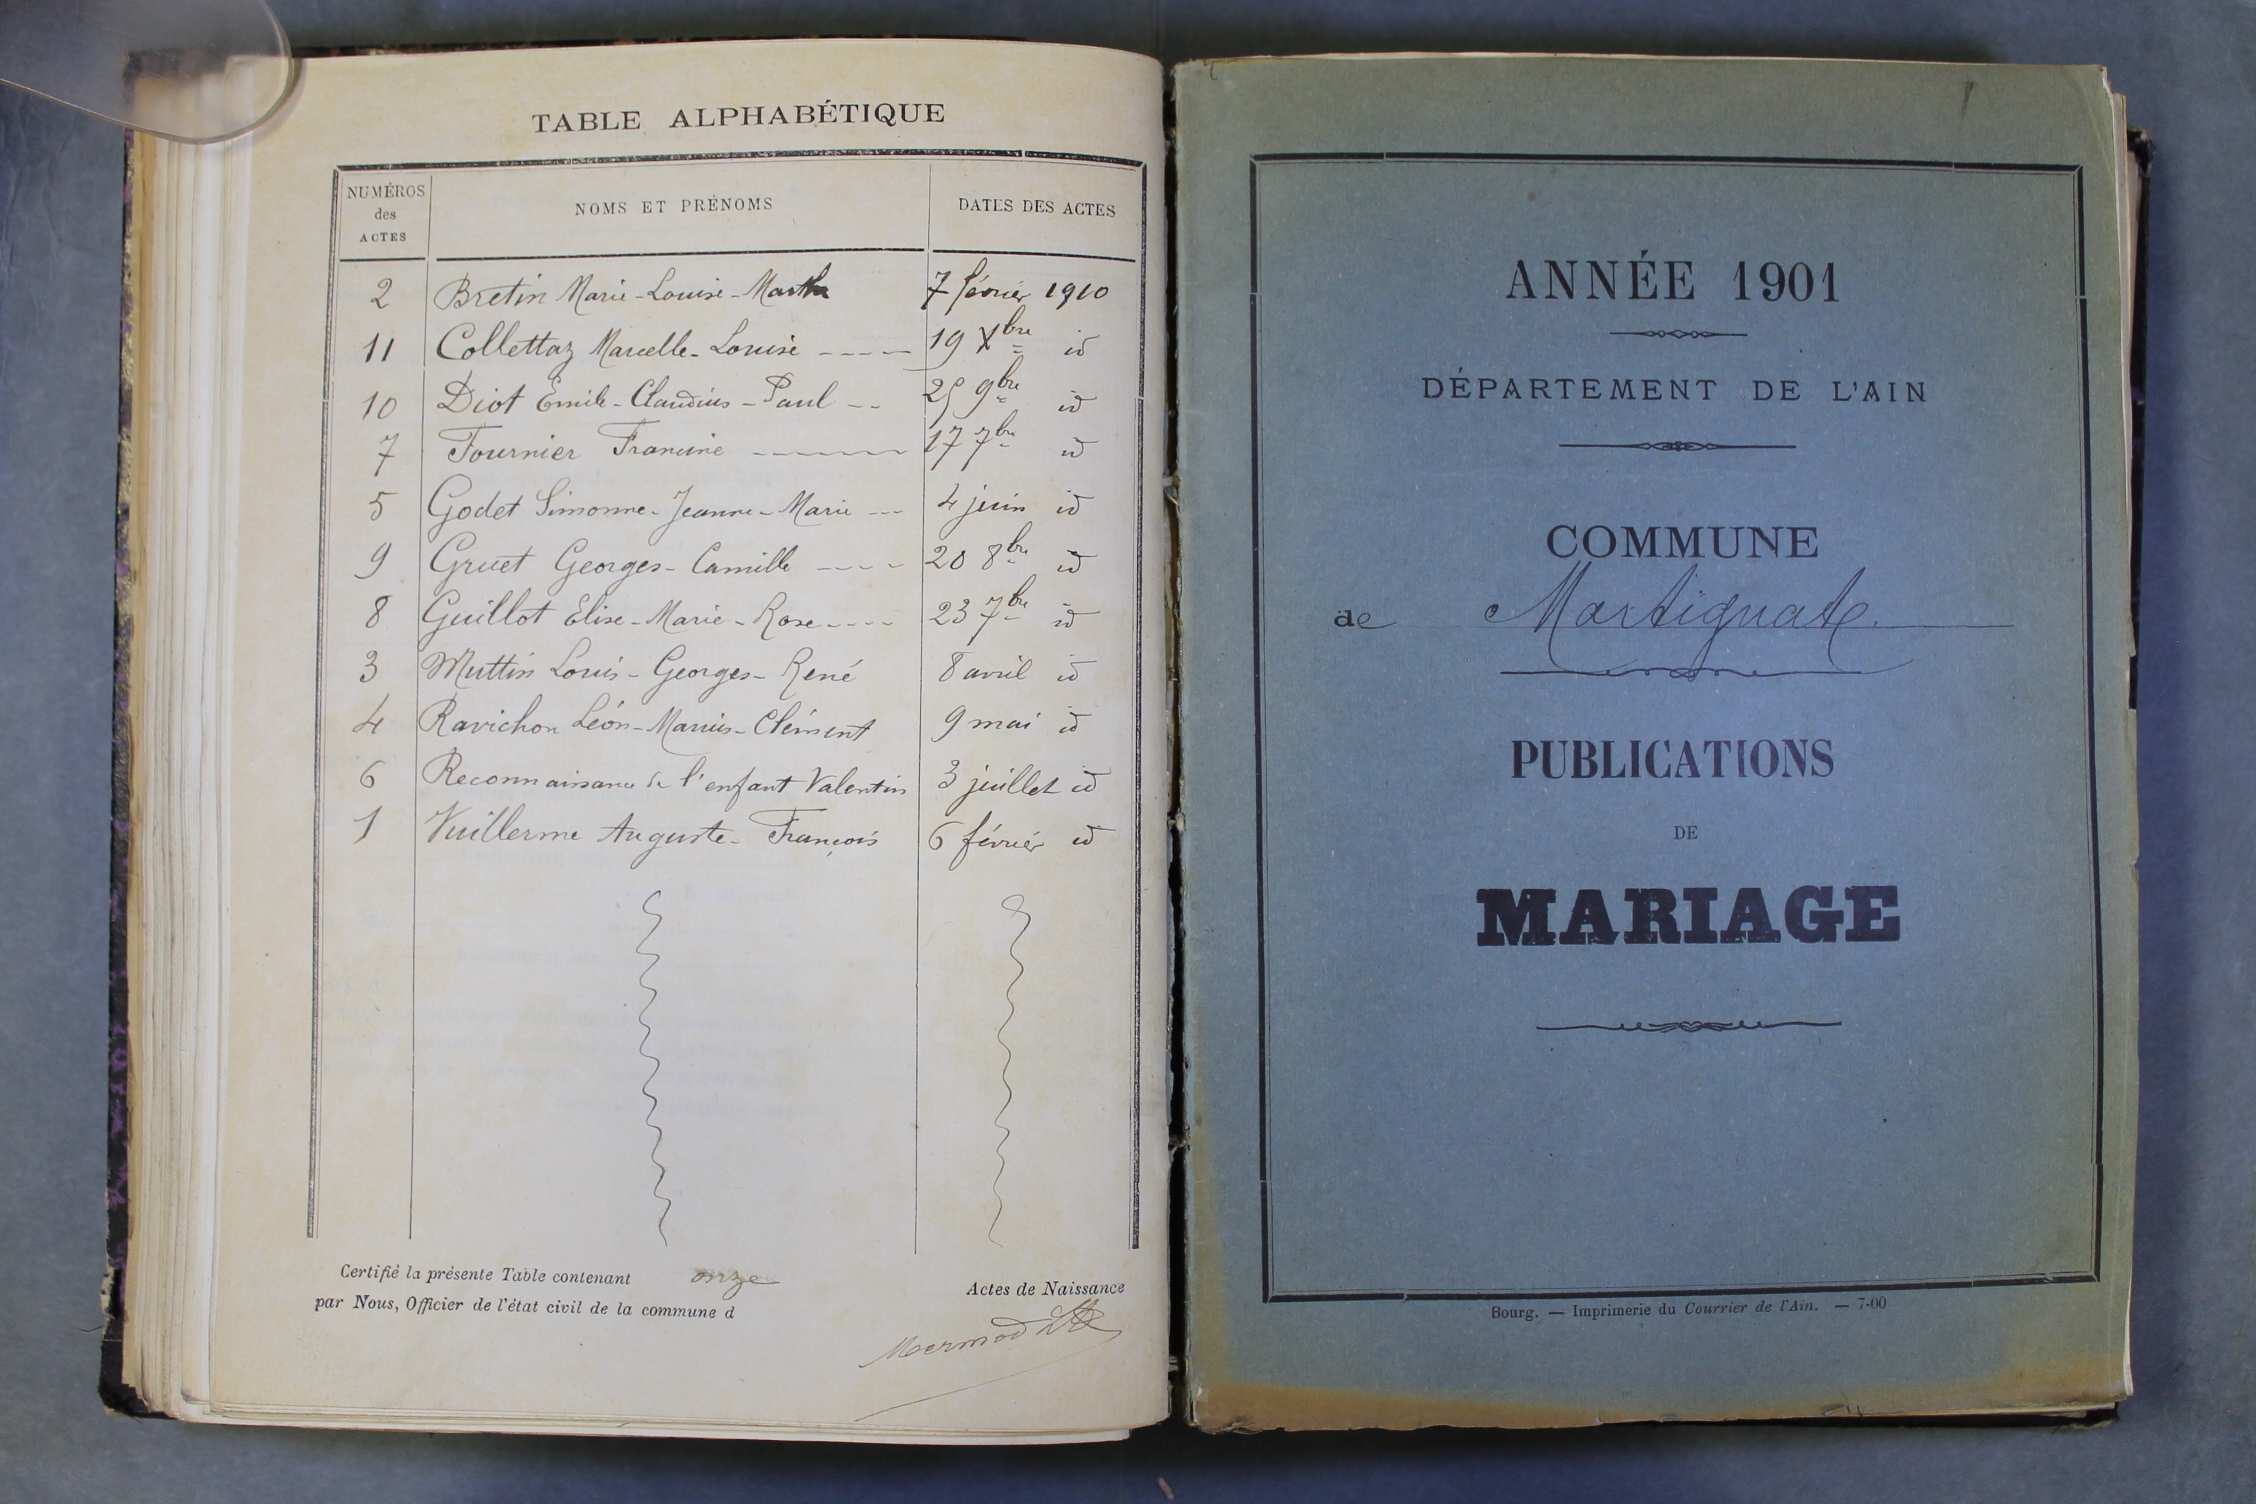 TABLE ALPHABÉTIQUE
NUMÉROS des ACTES
NOMS ET PRÉNOMS
DATES DES ACTES
2 Bretin Marie-Louise-Marthe 7 février 1910
11 Collettaz Marcelle-Louise ---- 19 Xbre id
10 Diot Emile-Claudius-Paul -- 25 9bre id
7 Fournier Francine ------ 17 7bre id
5 Godet Simonne-Jeanne-Marie --- 4 juin id
9 Gruet Georges-Camille ---- 20 8bre id
8 Guillot Elise-Marie-Rose ---- 23 7bre id
3 Muttin Louis-Georges-René 8 avril id
4 Ravichon Léon-Marius-Clément 9 mai id
6 Reconnaissance de l'enfant Valentin 3 juillet id
1 Vuillerme Auguste-François 6 février id
Certifié la présente Table contenant onze Actes de Naissance
par Nous, Officier de l'état civil de la commune d
Mermod
ANNÉE 1901
DÉPARTEMENT DE L'AIN
COMMUNE
de Martignat
PUBLICATIONS
DE
MARIAGE
Bourg. — Imprimerie du Courrier de l'Ain. — 7-00